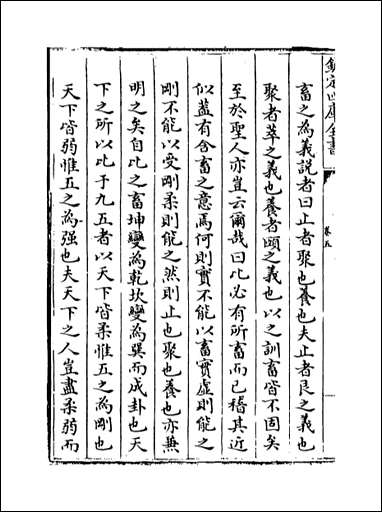 欽定四庫全書
卷五
畜之為義說者曰止者聚也養也夫止者艮之義也
聚者萃之義也養者頤之義也以之訓畜皆不固矣
至於聖人亦豈云爾哉曰比必有所畜而已稽其近
似蓋有含畜之意焉何則實不能以畜實虛則能之
剛不能以受剛柔則能之然則止也聚也養也亦兼
明之矣自比之畜坤變為乾坎變為巽而成卦也天
下之所以比于九五者以天下皆柔惟五之為剛也
天下皆弱惟五之為強也夫天下之人豈盡柔弱而